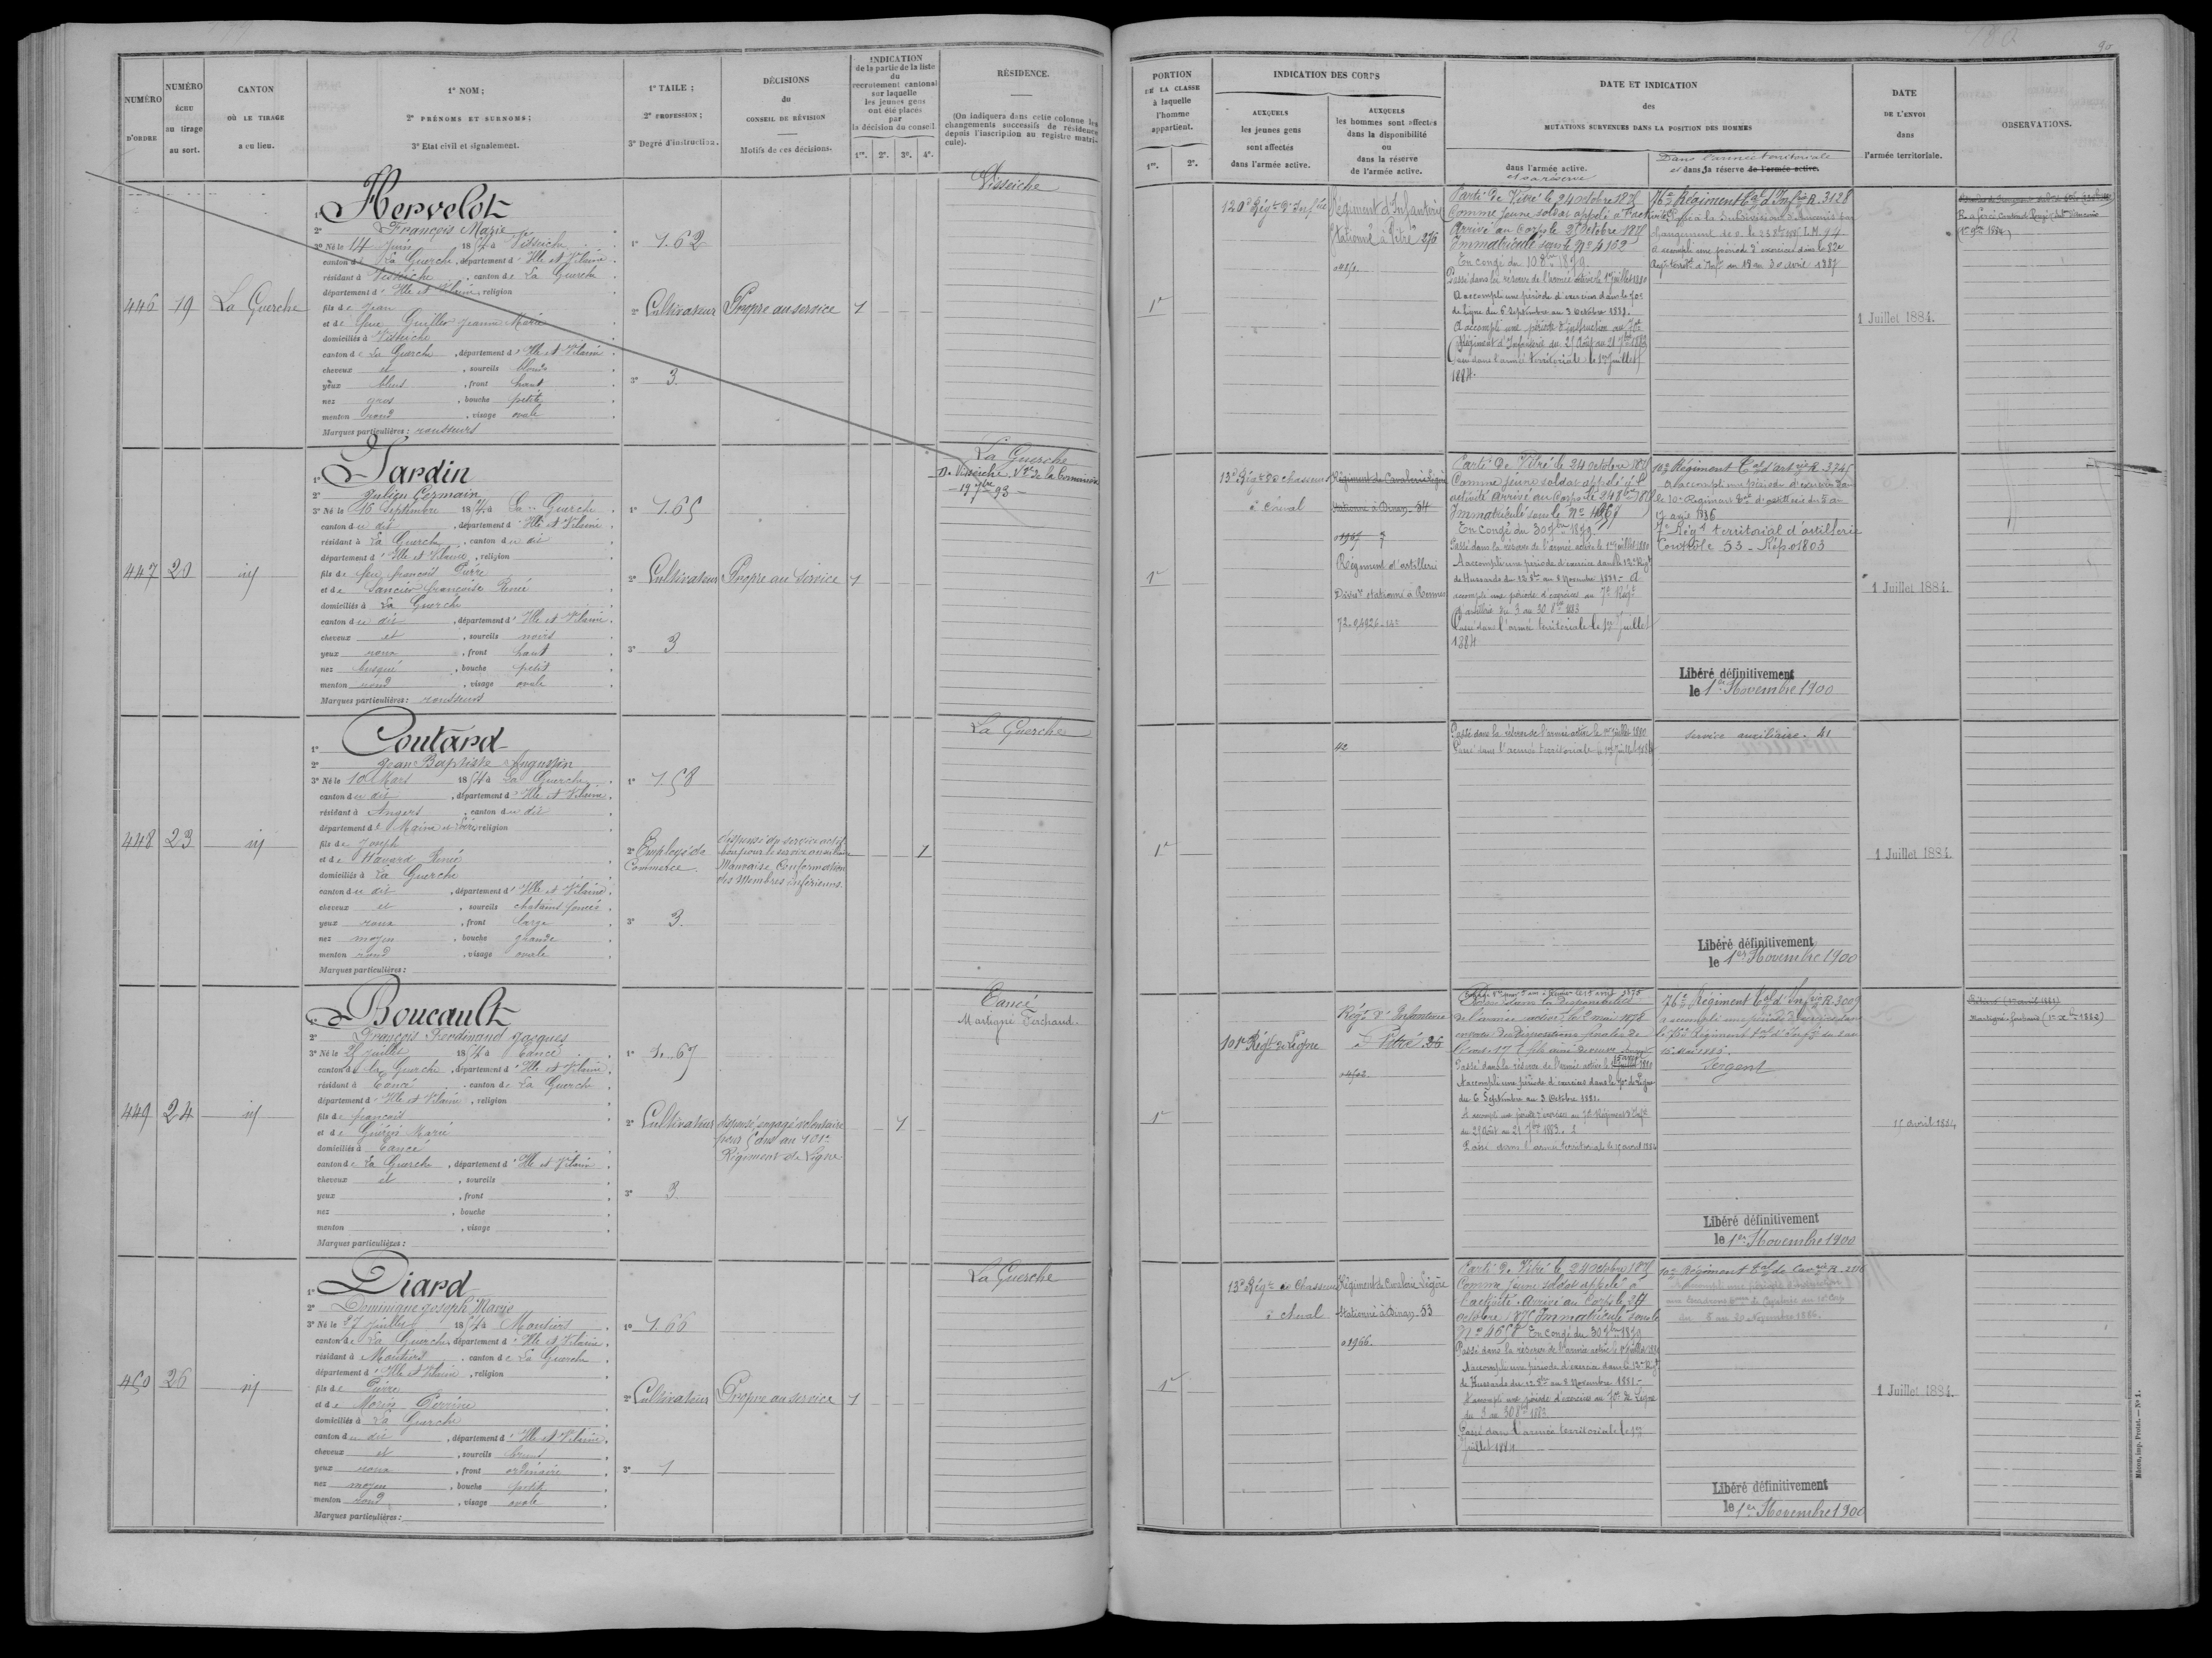 NUMÉRO
D'ORDRE
NUMÉRO
ÉCHU
au tirage
au sort.
CANTON
OÙ LE TIRAGE
a eu lieu.
1° NOM ;
2° PRÉNOMS ET SURNOMS ;
3° Etat civil et signalement.
1° TAILE ;
2° PROFESSION ;
3° Degré d'instruction.
DÉCISIONS
du
CONSEIL DE RÉVISION
Motifs de ces décisions.
INDICATION
de la partie de la liste
du
recrutement cantonal
sur laquelle
les jeunes gens
ont été placés
par
la décision du conseil
1re. 2e. 3e. 4e.
RÉSIDENCE.
(On indiquera dans cette colonne les
changements successifs de résidence
depuis l'inscription au registre matri-
cule).
446
19
La Guerche
1° Hervelot
2° François Marie
3° Né le 14 Juin 1854 à Visseiche
canton de La Guerche, département d'Ille et Vilaine
résidant à Visseiche, canton de La Guerche
département d'Ille et Vilaine, religion
fils de Jean
et de feue Guiller Jeanne Marie
domiciliés à Visseiche
canton de La Guerche, département d'Ille et Vilaine
cheveux et, sourcils blonds
yeux bleus, front haut
nez gros, bouche petite
menton rond, visage ovale
Marques particulières : rousseurs
1° 1.62
2° Cultivateur
3° 3
Propre au service
1
Visseiche
447
20
id
1° Jardin
2° Julien Germain
3° Né le 16 Septembre 1854 à La Guerche
canton du dit, département d'Ille et Vilaine
résidant à La Guerche, canton du dit
département d'Ille et Vilaine, religion
fils de feu françois Pierre
et de Sancier françoise Renée
domiciliés à La Guerche
canton du dit, département d'Ille et Vilaine
cheveux et, sourcils noirs
yeux roux, front haut
nez busqué, bouche petit
menton rond, visage ovale
Marques particulières : rousseurs
1° 1.65
2° Cultivateur
3° 3
Propre au service
1
La Guerche
448
23
id
1° Coutard
2° Jean Baptiste Augustin
3° Né le 10 Mars 1854 à La Guerche
canton du dit, département d'Ille et Vilaine
résidant à Angers, canton du dit
département de Maine et Loire, religion
fils de Joseph
et de Havard Renée
domiciliés à La Guerche
canton du dit, département d'Ille et Vilaine
cheveux et, sourcils chatains foncés
yeux roux, front large
nez moyen, bouche grande
menton rond, visage ovale
Marques particulières :
1° 1.58
2° Employé de
Commerce
3° 3
dispensé du service actif
bon pour le service auxiliaire
Mauvaise Conformation
des Membres inférieurs
1
La Guerche
449
24
id
1° Boucault
2° François Ferdinand Jacques
3° Né le 25 Juillet 1854 à Eancé
canton de la Guerche, département d'Ille et Vilaine
résidant à Eancé, canton de La Guerche
département d'Ille et Vilaine, religion
fils de françois
et de Marie
domiciliés à Eancé
canton de La Guerche, département d'Ille et Vilaine
cheveux et, sourcils
yeux, front
nez, bouche
menton, visage
Marques particulières :
1° 1.67
2° Cultivateur
3° 3
dispensé, engagé volontaire
pour 5 ans au 101e
Régiment de Ligne
1
Eancé
Martigné Ferchaud
450
26
id
1° Diard
2° Dominique Joseph Marie
3° Né le 27 Juillet 1854 à Moutiers
canton de La Guerche, département d'Ille et Vilaine
résidant à Moutiers, canton de La Guerche
département d'Ille et Vilaine, religion
fils de Pierre
et de Morin Perrine
domiciliés à La Guerche
canton du dit, département d'Ille et Vilaine
cheveux et, sourcils bruns
yeux roux, front ordinaire
nez moyen, bouche petite
menton rond, visage ovale
Marques particulières :
1° 1.66
2° Cultivateur
3° 1
Propre au service
1
La Guerche
90
PORTION
DE LA CLASSE
à laquelle
l'homme
appartient.
1re. 2e.
INDICATION DES CORPS
AUXQUELS
les jeunes gens
sont affectés
dans l'armée active.
AUXQUELS
les hommes sont affectés
dans la disponibilité
ou
dans la réserve
de l'armée active.
DATE ET INDICATION
des
MUTATIONS SURVENUES DANS LA POSITION DES HOMMES
dans l'armée active.
et sa réserve
Dans l'armée territoriale
et dans sa réserve de l'armée active.
DATE
DE L'ENVOI
dans
l'armée territoriale.
OBSERVATIONS.
1re
120e Régt d'Infrie
Régiment d'Infanterie
Stationné à Vitré 276
Parti de Vitré le 24 octobre 1875
Comme jeune soldat appelé à l'activité
Arrivé au Corps le 25 octobre 1875
Immatriculé sous le N° 4162
En congé du 10 8bre 1879.
Passé dans la réserve de l'armée active le 1er Juillet 1880
A accompli une période d'exercices dans le 70e
de Ligne du 6 Septembre au 3 Octobre 1881.
A accompli une période d'instruction au 70e
Régiment d'Infanterie du 25 Août au 21 7bre 1883
Passé dans l'armée territoriale le 1er Juillet
1884.
76e Régiment tal d'Infrie R. 3128
a accompli une période d'exercices dans le 82e
Régt territ. d'Inf. du 18 au 30 avril 1887
1 Juillet 1884.
1re
13e Régt de chasseurs
à cheval
Régiment de Cavalerie Légère
Stationné à Dinan 54
Régiment d'artillerie
Divisre stationné à Rennes
Parti de Vitré le 24 octobre 1875
Comme jeune soldat appelé à l'
activité arrivé au Corps le 24 8bre 1875
Immatriculé sous le N° 4667
En Congé du 30 7bre 1879
Passé dans la réserve de l'armée active le 1er Juillet 1880
A accompli une période d'exercice dans le 12e Régt
de Hussards du 12 8bre au 8 Novembre 1881. A
accompli une période d'exercices au 7e Régt
d'artillerie du 3 au 30 8bre 1883
Passé dans l'armée territoriale le 1er Juillet
1884
10e Régiment tal d'artrie R. 3745
a accompli une période d'exercices dans
le 10e Régiment tal d'artillerie du 5 au
17 avril 1886
7e Régt territorial d'artillerie
Contrôle 53 - Rép. 01803
Libéré définitivement
le 1er Novembre 1900
1 Juillet 1884.
1re
42
Passé dans la réserve de l'armée active le 1er Juillet 1880
Passé dans l'armée territoriale le 1er Juillet 1884
Service auxiliaire. 41
Libéré définitivement
le 1er Novembre 1900
1 Juillet 1884.
1re
101e Régt de Ligne
Régt d'Infanterie
à Vitré 26
de l'armée active le 2 mai 1878
Passé dans la réserve de l'armée active le 15 avril 1880
A accompli une période d'exercices dans le 70e de Ligne
du 6 Septembre au 3 Octobre 1881.
A accompli une période d'exercices au 70e Régiment d'Infrie
du 25 Août au 21 7bre 1883.
Passé dans l'armée territoriale le 15 avril 1884
76e Régiment tal d'Infrie R. 3009
a accompli une période d'exercices dans
Sergent
Libéré définitivement
le 1er Novembre 1900
15 avril 1884
Martigné ferchaud
1re
13e Régt de Chasseurs
à cheval
Régiment de Cavalerie Légère
Stationné à Dinan 53
01966.
Parti de Vitré le 24 octobre 1875
Comme jeune soldat appelé à
l'activité. Arrivé au Corps le 24
octobre 1875 Immatriculé sous le
N° 4658 En congé du 30 7bre 1879
Passé dans la réserve de l'armée active le 1er Juillet 1880
A accompli une période d'exercice dans le 12e Régt
de Hussards du 12 8bre au 8 Novembre 1881.
A accompli une période d'exercices au 70e de Ligne
du 3 au 30 8bre 1883
Passé dans l'armée territoriale le 1er
Juillet 1884
10e Régiment tal de Cavrie
Libéré définitivement
le 1er Novembre 1900
1 Juillet 1884.
Mâcon, imp. Protat. — N° 1.